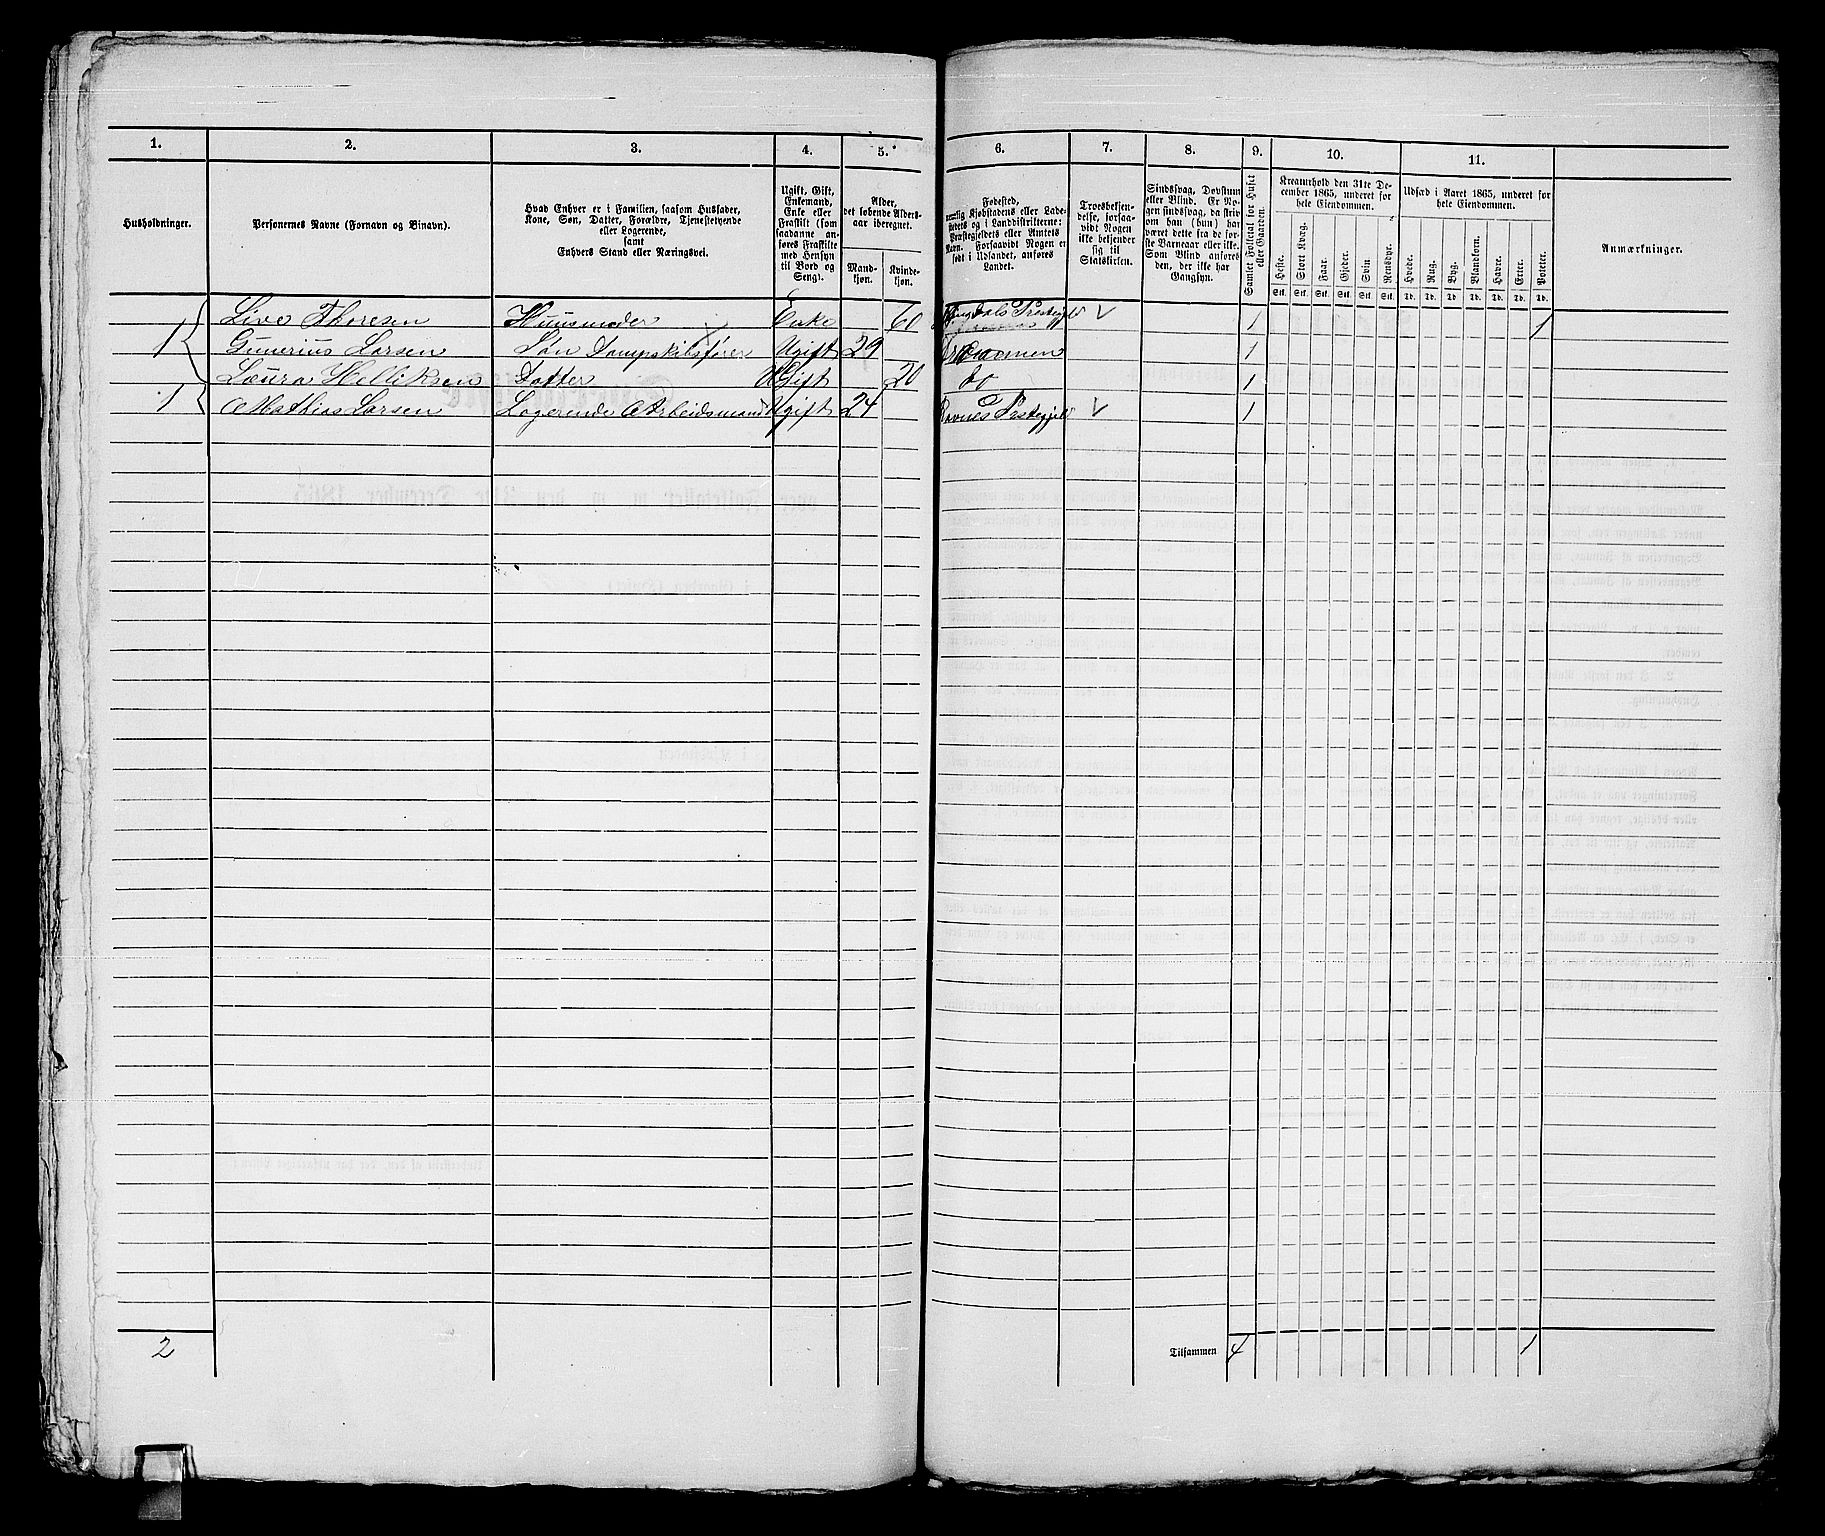 1. 2. 3. 4. 5. 6. 7. 8. 9. 10. 11.
Husholdninger.
Personernes Navne (Fornavn og Binavn).
Hvad Enhver er i Familien, saasom Husfader,
Kone, Søn, Datter, Forældre, Tjenestetyende
eller Logerende,
samt
Enhvers Stand eller Næringsvei.
Ugift, Gift,
Enkemand,
Enke eller
Fraskilt (som
saadanne an-
føres Fraskilte
med Hensyn
til Bord og
Seng).
Alder,
det løbende Alders-
aar iberegnet.
Mand-
kjøn.
Kvinde-
kjøn.
Fødested,
nemlig Kjøbstadens eller Lade-
stedets og i Landdistrikterne:
Præstegjeldets eller Amtets
Navn. Forsaavidt Nogen er
født i Udlandet, anføres
Landet.
Troesbekjen-
delse, forsaa-
vidt Nogen
ikke bekjender
sig til
Statskirken.
Sindssvag, Døvstum
eller Blind. Er No-
gen sindssvag, da skriv
om han (hun) har
været dette fra de før-
ste Barneaar eller ikke.
Som Blind anføres
den, der ikke har
Gangsyn.
Samlet Folketal for Huset
eller Gaarden.
Kreaturhold den 31te De-
cember 1865, underet for
hele Eiendommen.
Heste. Stort Kvæg. Faar. Gjeder. Svin. Rensdyr.
Stk. Stk. Stk. Stk. Stk. Stk.
Udsæd i Aaret 1865, underet for
hele Eiendommen.
Hvede. Rug. Byg. Blandkorn. Havre. Erter. Poteter.
Td. Td. Td. Td. Td. Td. Td.
Anmærkninger.
1 Live Thoresen Huusmoder Enke 60 Præstegjeld 1 1
Gunerius Larsen Søn Dampskibsfører Ugift 29 Drammen 1
Laura Helliksen Datter Ugift 20 do 1
1 Mathias Larsen Logerende Arbeidsmand Ugift 24 Præstegjeld 1
2 Tilsammen 4 1